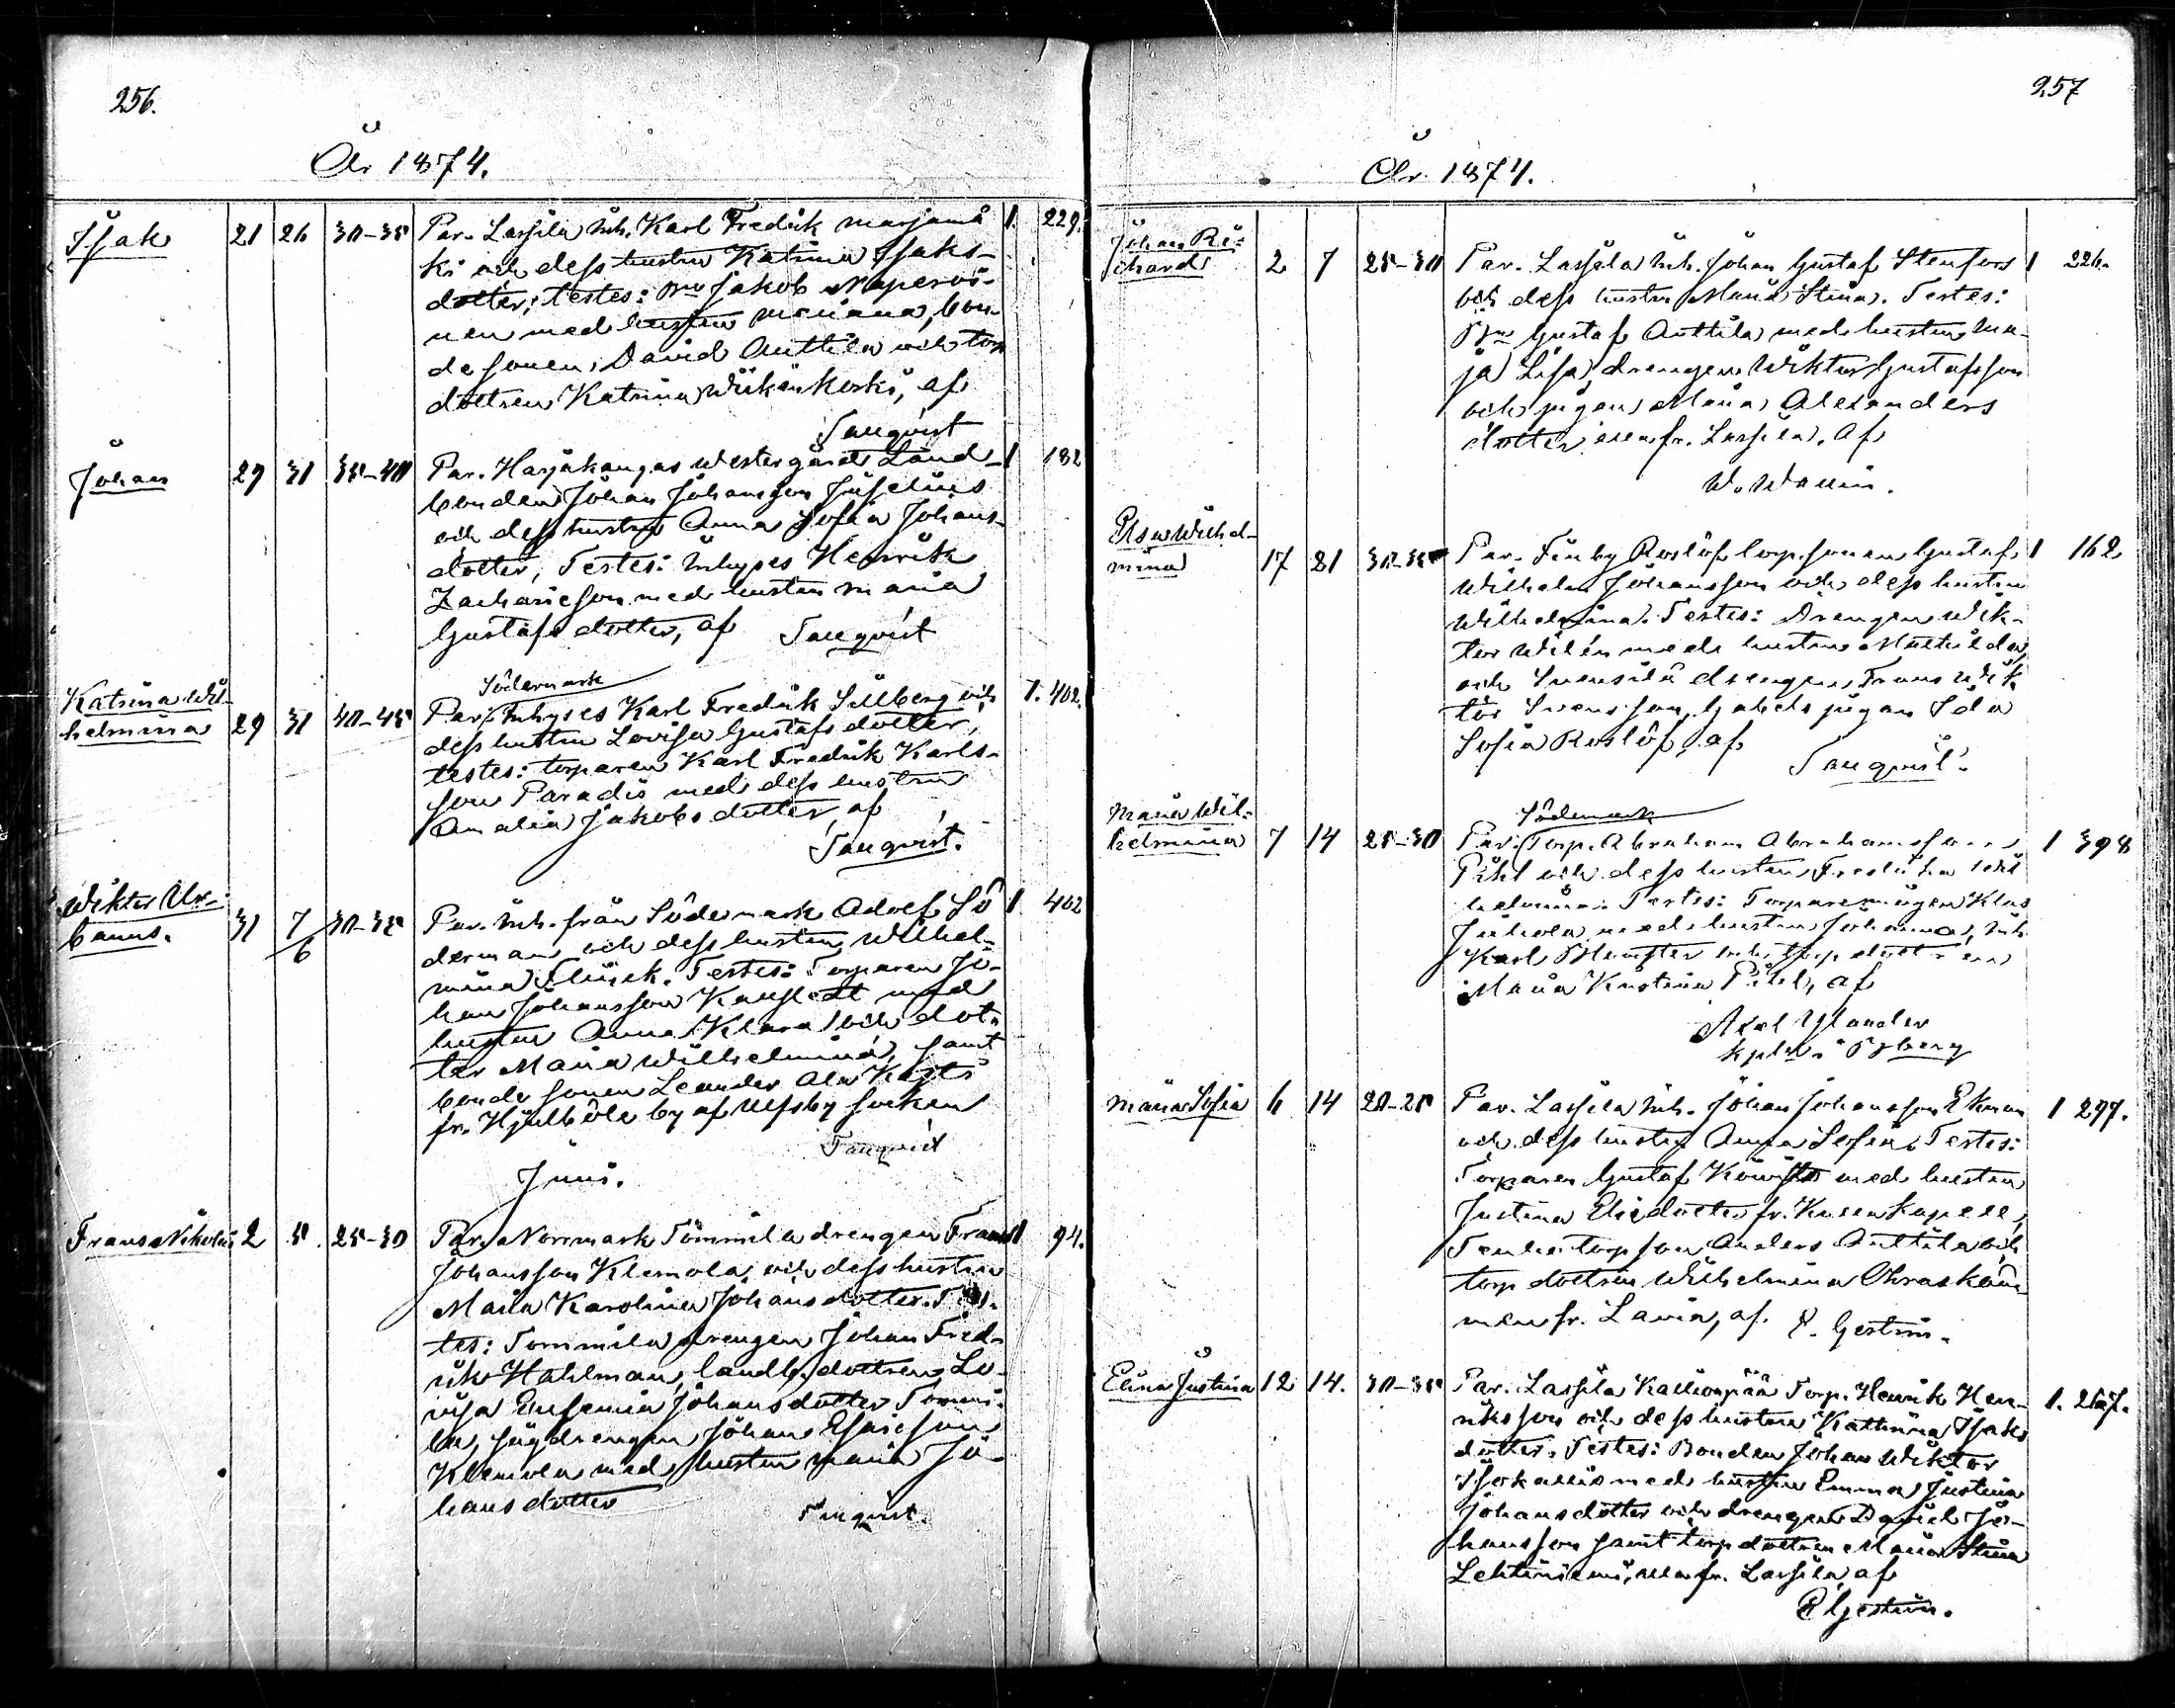 256.
År 1874.
Isak 21 26 30-35 Par. Lassila Inh. Karl Fredrik Marjamä 1. 229.
ki och dess hustru Katrina Isaks-
dotter; testes: Jakob
nen med hustru Mariana, bon-
desonen David Anttila och torp
dottren Katrina Wiikinkoski, af
Tanqvist
Johan 29 31 35-40 Par. Harjakangas Westergård Land- 1 132
bonden Johan Johansson Juselius
och dess hustru Anna Sofia Johans-
dotter, Testes: Inhyses Henrik
Zachariesson med hustru Maria
Gustafsdotter, af Tanqvist
Södermark
Katrina Wil-
helmina 29 31 40-45 Par. Inhyses Karl Fredrik Sillberg och 1. 402.
dess hustru Lovisa Gustafsdotter,
testes: torparen Karl Fredrik Karls-
son Paradis med dess hustru
Amalia Jakobsdotter, af
Tanqvist.
Wiktor Ur-
banus. 31 7/6 30-35 Par. Inh. från Södermark Adolf Sö 1. 402
derman och dess hustru Wilhel-
mina Flinck. Testes: Torparen Jo-
han Johansson med
hustru Anna Klara och dot-
ter Maria Wilhelmina, samt
bonde sonen Leander Ala
fr. Hjulböle by af Ulfsby socken
Tanqvist
Juni.
Frans Nikolai 2 5. 25-30 Par. Norrmark Tommila drengen Frans 1 94.
Johansson Klemola och dess hustru
Maria Karolina Johansdotter. Tes-
tes: Tommila drengen Johan Fred-
rik Hahlman, landb. dottren Lo-
visa Eufemia Johansdotter Tommi-
la, drengen Johan Esaiesson
Klemola med hustru Maria Jo-
hansdotter
Tanqvist.
257
År 1874.
Johan Ri-
chard 2 7 25-30 Par. Lassila Inh. Johan Gustaf Stenfors 1 226.
och dess hustru Maria Stina. Testes:
Bn Gustaf Anttila med hustru Ma-
ja Lisa, drengen Wiktor Gustafsson
och pigan Maria Alexanders
dotter alla fr. Lassila. Af
W. Wallin.
Elsa Wilhel-
mina 17 21 30-35 Par. Finby Roslöf torp. sonen Gustaf 1 162
Wilhelm Johansson och dess hustru
Wilhelmina. Testes: Drengen Wik-
tor Wilén med hustru Mathilda
och Svensilä drengen Frans Wik
tor Svensson, pigan Ida
Sofia Roslöf, af
Tanqvist.
Södermark
Maria Wil-
helmina 7 14 25-30 Par. Torp. Abraham Abrahamsson 1 398
Pihl och dess hustru Fredrika Wil
helmina. Testes: Torparemågen Klas
Juhola med hustru Johanna, Inh
Karl Blomster och torp dottren
Maria Kristina Pihl, af
Axel Ylander
kpln i Björneborg
Maria Sofia 6 14 20-25 Par. Lassila Inh. Johan Johansson Ekman 1 297.
och dess hustru Anna Sofia. Testes:
Torparen Gustaf Koivisto med hustru
Justina Eliedotter fr. Kapell,
torpson Anders Anttila och
torp dottren Wilhelmina
fr. Lavia, af. E. Gestrin.
Elina Justina 12 14. 30-35 Par. Lassila Kallionpää Torp. Henrik Hen- 1. 267.
riksson och dess hustru Kathrina Isaks
dotter. Testes: Bonden Johan Wiktor
Isokallio med hustru Emma Justina
Johansdotter och drengen David Jo-
hansson samt torp dottren Maria Stina
Lehtiniemi, alla fr. Lassila, af
E Gestrin.